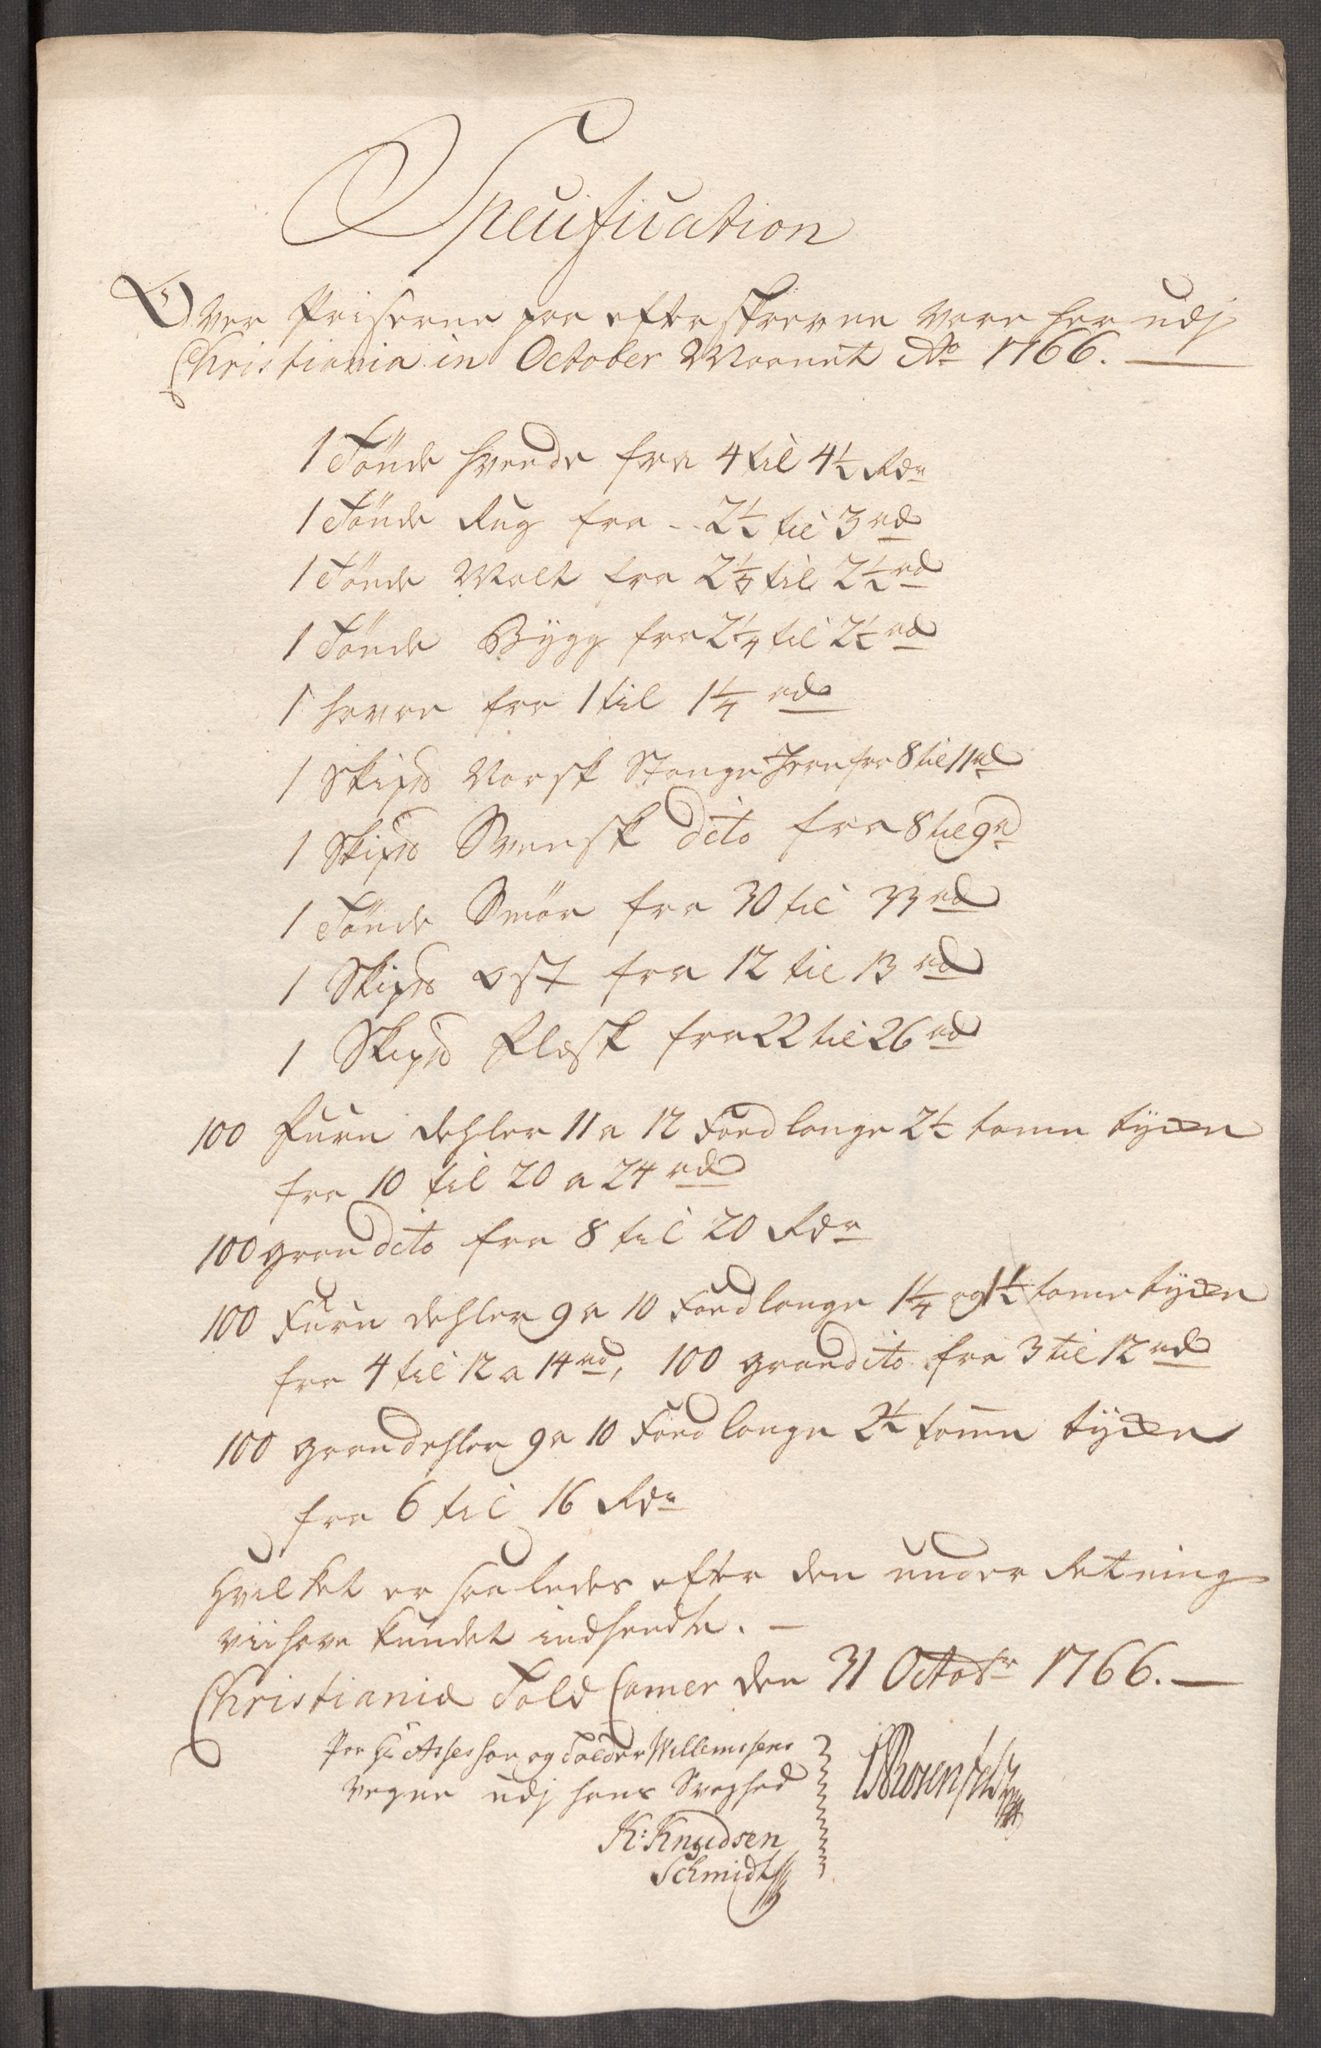 Specification
Over Priserne paa efterskrevne Vare her udj
Christiania in October Maanet Ao 1766.
1 Tönde Hvede fra 4 til 4½ Rdr
1 Tönde Rug fra - 2½ til 3 rd
1 Tönde Malt fra 2⅛ til 2½ rd
1 Tönde Bÿgg fra 2¼ til 2½ rd
1 havre fra 1 til 1¼ rd
1 Skipd Norsk Stange Jern fra 8 til 11 rd
1 Skipd Svensk dito fra 8 til 9 rd
1 Tönde Smör fra 30 til 33 rd
1 Skipd Ost fra 12 til 13 rd
1 Skipd Flesk fra 22 til 26 rd
100 Furu dehler 11 a 12 Foed lange 2½ tomme tÿcke
fra 10 til 20 a 24 rd
100 gran dito fra 8 til 20 Rdr
100 Furu dehler 9 a 10 Foed lange 1¼ og 1½ tome tÿcke
fra 4 til 12 a 14 rd, 100 gran dito fra 3 til 12 rd
100 gran dehler 9 a 10 Foed lange 2½ tomme tÿcke
fra 6 til 16 Rdr
Hvilket er saaledes efter den underretning
vii have kundet indhendte.
Christiania Told Camer den 31 Octobr 1766.
Paa Hr Assessor og Tolder Willemsens
Vegne udj hans Svaghed
K: Knudsen
Schmidt
Rosenfeldt